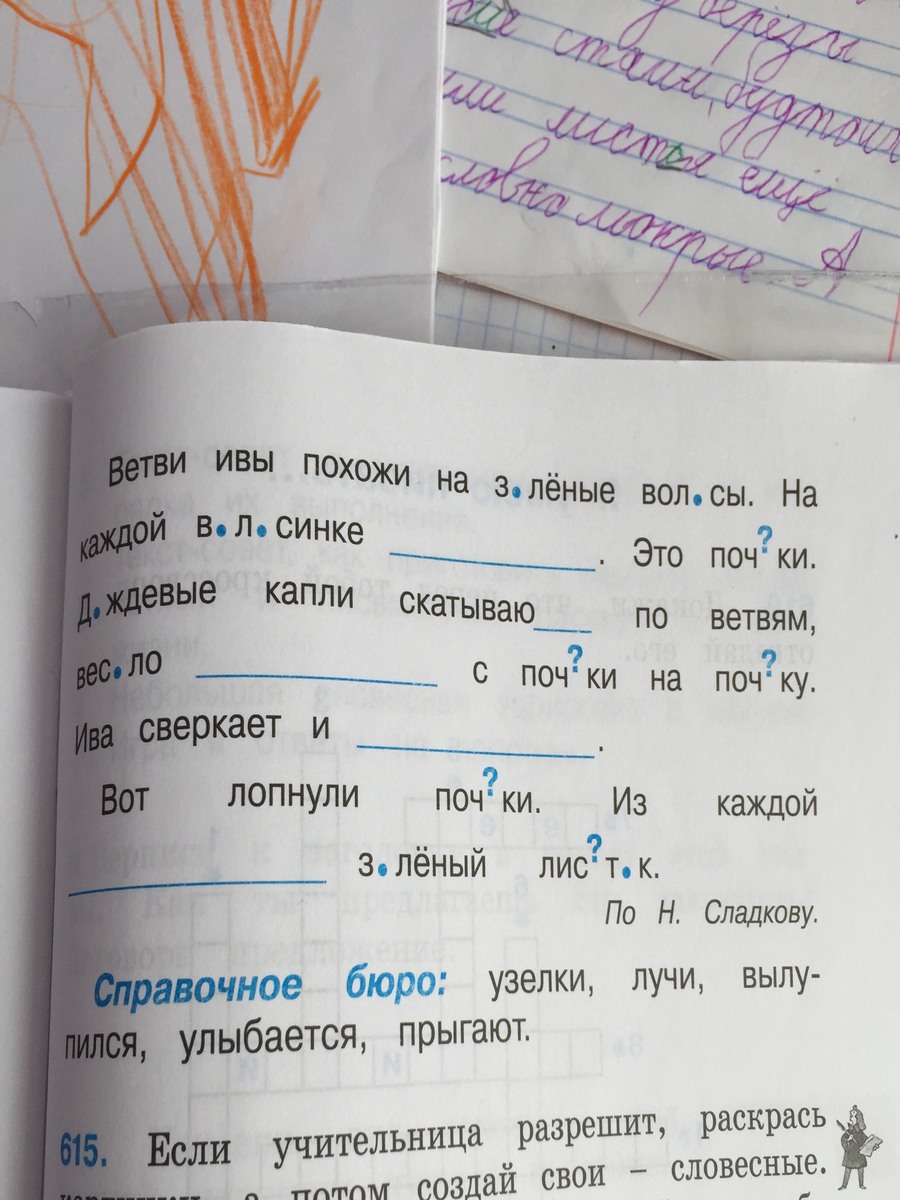 у берёзы
стаи, будто
или листья ещё
словно мокрые А
Ветви ивы похожи на з.лёные вол.сы. На
каждой в.л.синке ____________. Это поч?ки.
Д.ждевые капли скатываю___ по ветвям,
вес.ло ____________ с поч?ки на поч?ку.
Ива сверкает и ____________.
Вот лопнули поч?ки. Из каждой
____________ з.лёный лис?т.к.
По Н. Сладкову.
Справочное бюро: узелки, лучи, вылу-
пился, улыбается, прыгают.
615. Если учительница разрешит, раскрась
а потом создай свои – словесные.